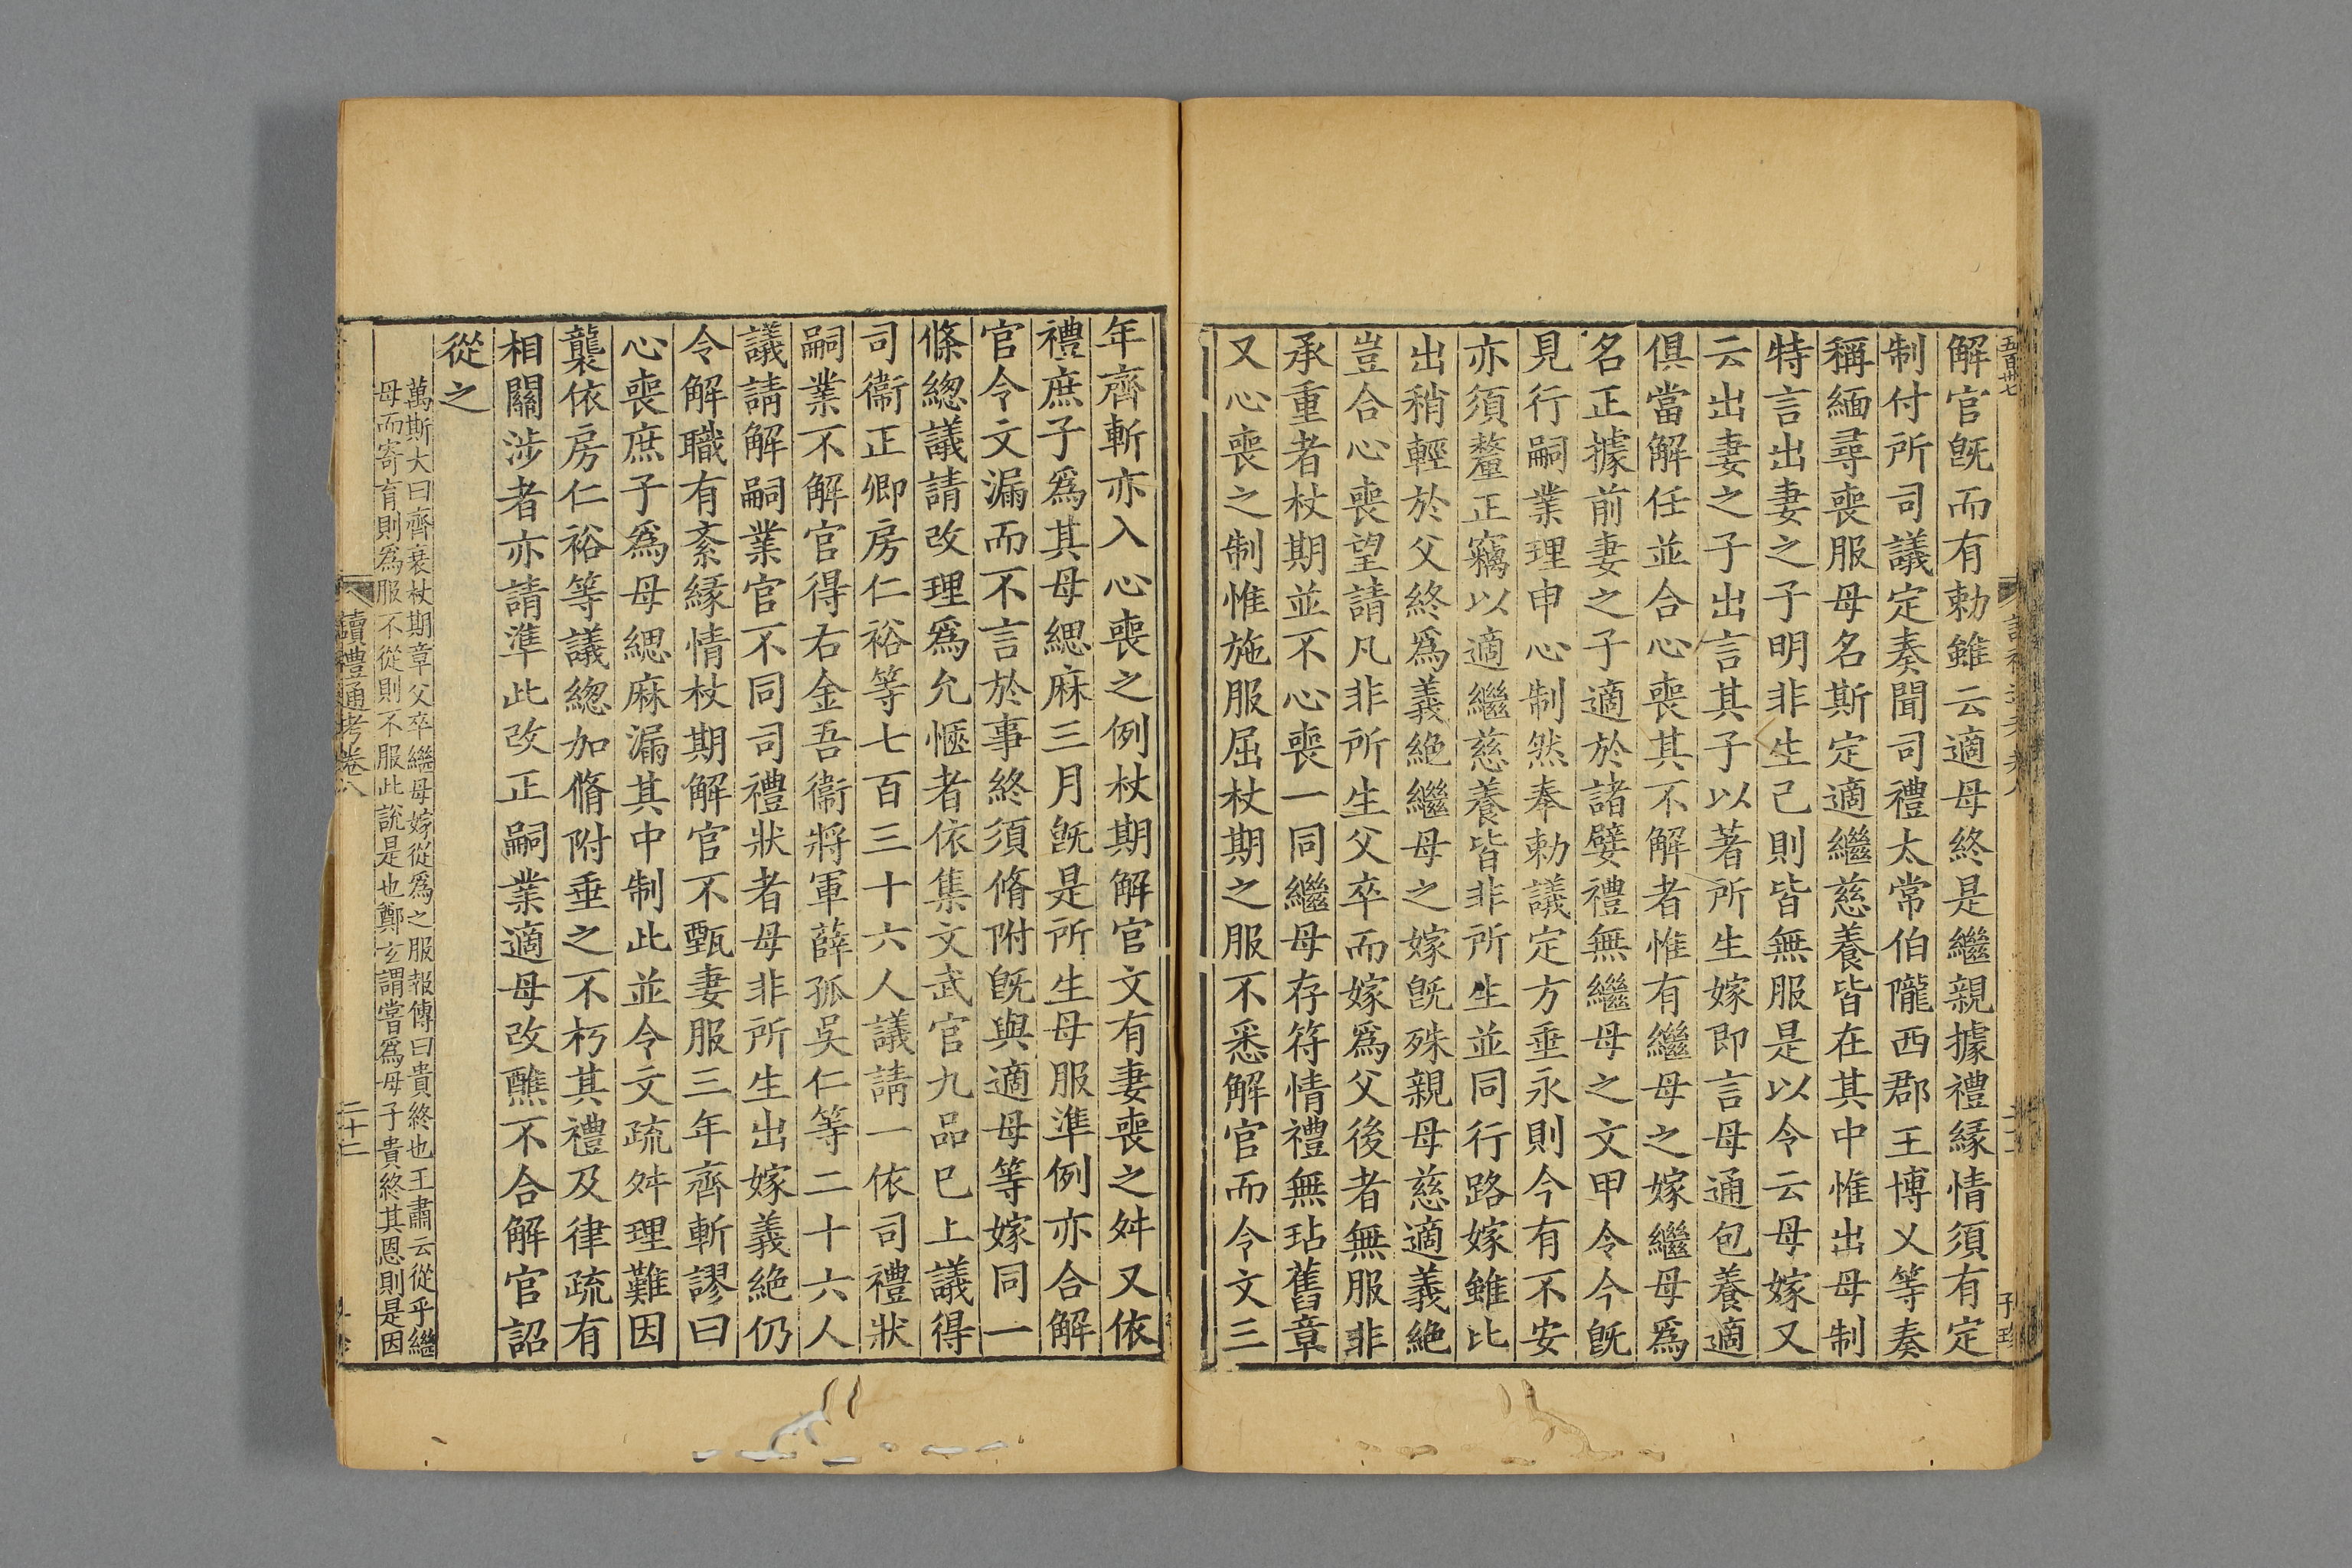 解官旣而有勅雖云適母終是繼親據禮縁情須有定
制付所司議定奏聞司禮太常伯隴西郡王博乂等奏
稱緬尋喪服母名斯定適繼慈養皆在其中惟出母制
特言出妻之子明非生己則皆無服是以令云母嫁又
云出妻之子出言其子以著所生嫁即言母通包養適
俱當解任並合心喪其不解者惟有繼母之嫁繼母爲
名正據前妻之子適於諸孽禮無繼母之文甲令今旣
見行嗣業理申心制然奉勅議定方垂永則今有不安
亦須釐正竊以適繼慈養皆非所生並同行路嫁雖比
出稍輕於父終爲義絶繼母之嫁旣殊親母慈適義絶
豈合心喪望請凡非所生父卒而嫁爲父後者無服非
承重者杖期並不心喪一同繼母存符情禮無玷舊章
又心喪之制惟施服屈杖期之服不悉解官而令文三
年齊斬亦入心喪之例杖期解官文有妻喪之舛又依
禮庶子爲其母緦麻三月旣是所生母服準例亦合解
官令文漏而不言於事終須脩附旣與適母等嫁同一
條總議請改理爲允愜者依集文武官九品已上議得
司衞正卿房仁裕等七百三十六人議請一依司禮狀
嗣業不解官得右金吾衞將軍薛孤吳仁等二十六人
議請解嗣業官不同司禮狀者母非所生出嫁義絶仍
令解職有紊縁情杖期解官不甄妻服三年齊斬謬曰
心喪庶子爲母緦麻漏其中制此並令文疏舛理難因
襲依房仁裕等議總加脩附垂之不朽其禮及律疏有
相關涉者亦請準此改正嗣業適母改醮不合解官詔
從之
萬斯大曰齊衰杖期章父卒繼母嫁從爲之服報傳曰貴終也王肅云從乎繼
母而寄育則爲服不從則不服此說是也鄭玄謂嘗爲母子貴終其恩則是因
讀禮通考卷八
二十二